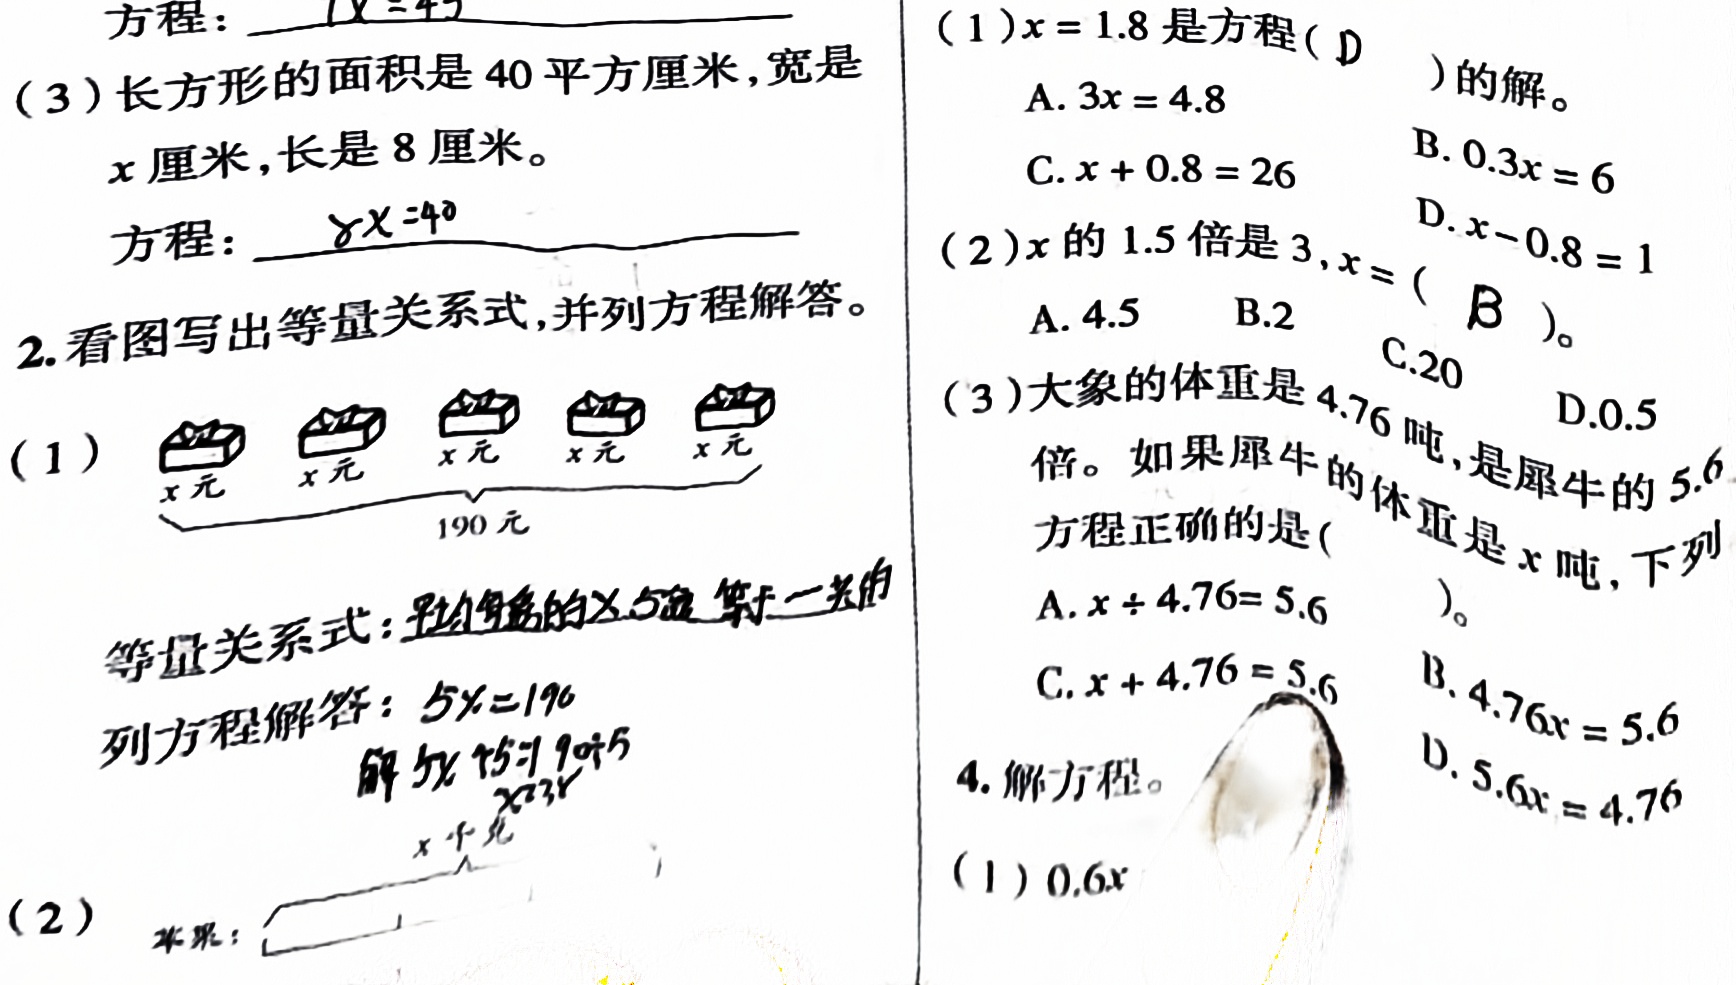 方程：
（3）长方形的面积是 40 平方厘米，宽是
x 厘米，长是 8 厘米。
方程： 8x=40
2. 看图写出等量关系式，并列方程解答。
（1）
x 元 x 元 x 元 x 元 x 元
190 元
等量关系式：
列方程解答： 5x=190
解 5x÷5=190÷5
x=38
x 千克
（2）
苹果：
（1）x = 1.8 是方程（ D ）的解。
A. 3x = 4.8 B. 0.3x = 6
C. x + 0.8 = 26 D. x − 0.8 = 1
（2）x 的 1.5 倍是 3，x =（ B ）。
A. 4.5 B.2 C.20 D.0.5
（3）大象的体重是 4.76 吨，是犀牛的 5.6
倍。如果犀牛的体重是 x 吨，下列
方程正确的是（ ）。
A. x ÷ 4.76= 5.6 B. 4.76x = 5.6
C. x + 4.76 = 5.6 D. 5.6x = 4.76
4. 解方程。
（1）0.6x